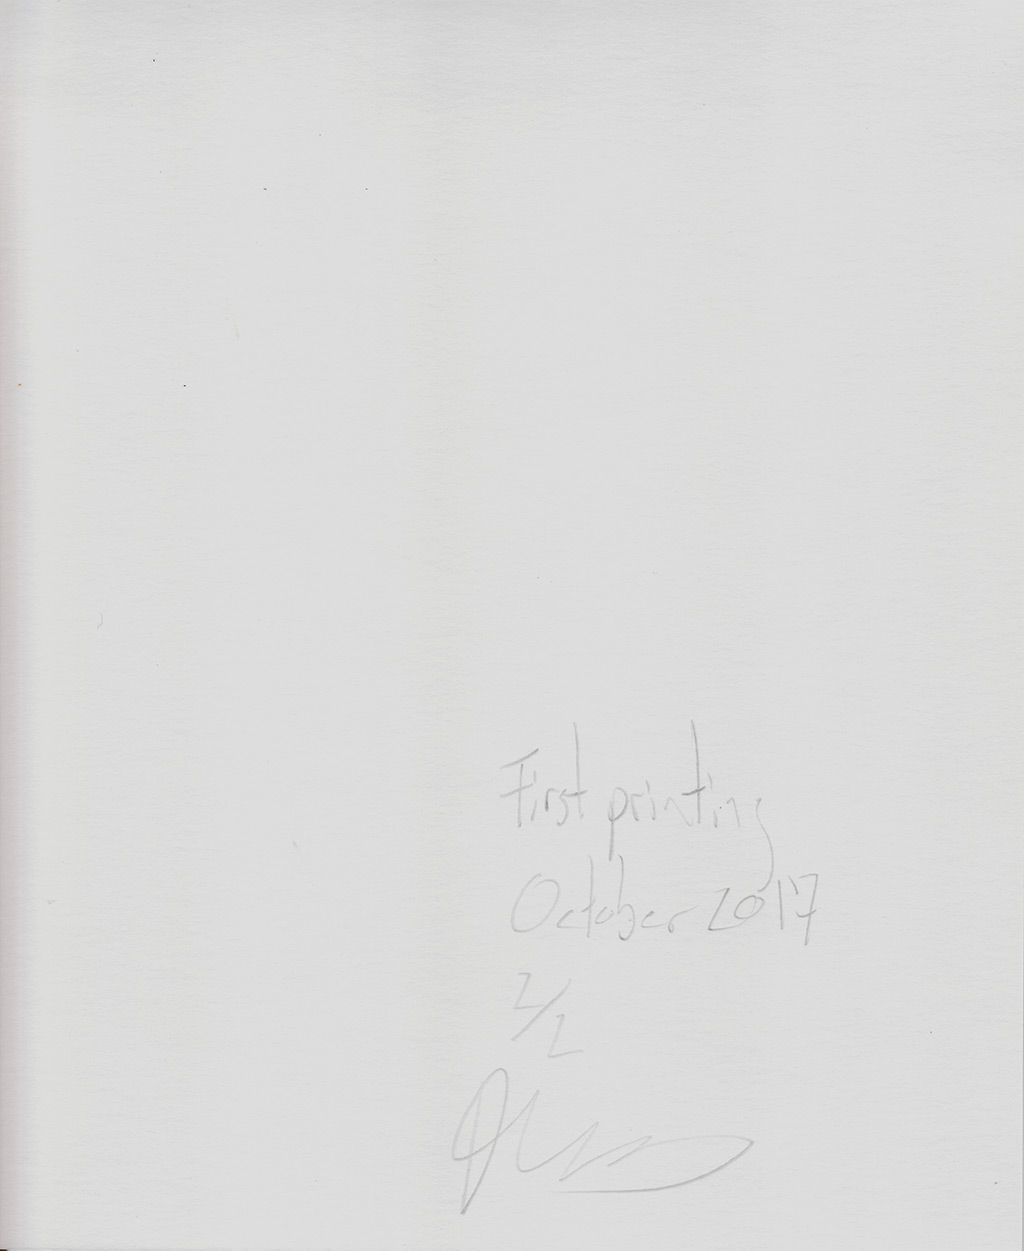 First printing
October 2017
2/2